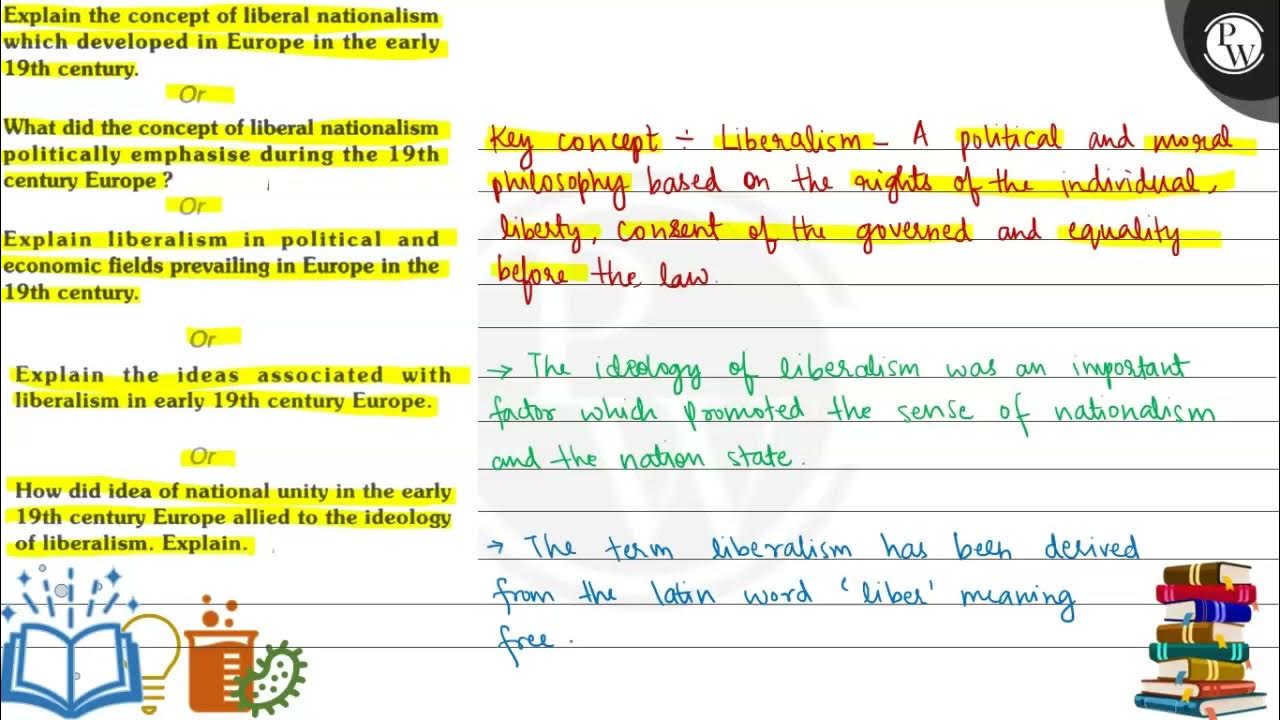 Explain the concept of liberal nationalism
which developed in Europe in the early
19th century.
Or
What did the concept of liberal nationalism
politically emphasise during the 19th
century Europe ?
Or
Explain liberalism in political and
economic fields prevailing in Europe in the
19th century.
Or
Explain the ideas associated with
liberalism in early 19th century Europe.
Or
How did idea of national unity in the early
19th century Europe allied to the ideology
of liberalism. Explain.
PW
Key concept ÷ Liberalism - A political and moral
philosophy based on the rights of the individual,
liberty, consent of the governed and equality
before the law.
→ The ideology of liberalism was an important
factor which promoted the sense of nationalism
and the nation state.
→ The term liberalism has been derived
from the latin word 'liber' meaning
free.